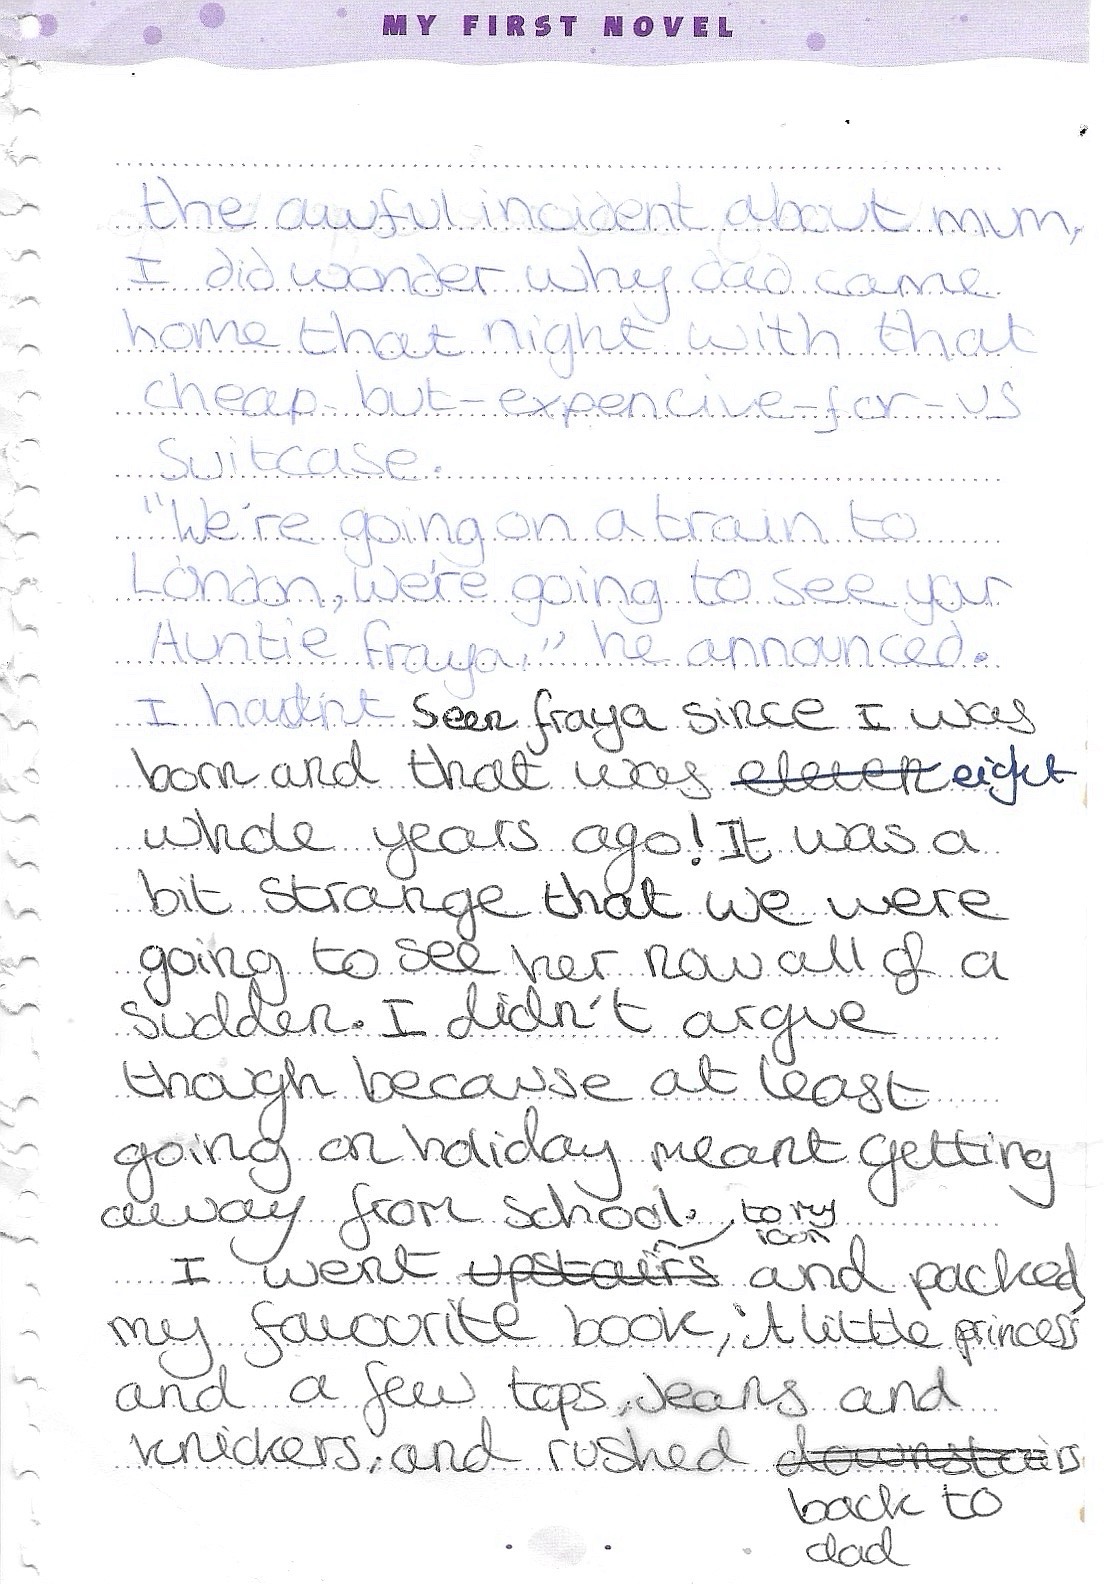 MY FIRST NOVEL
the awful incident about mum,
I did wonder why dad came
home that night with that
cheap-but-expencive-for-us
suitcase.
"We're going on a train to
London, we're going to see your
Auntie fraya," he announced.
I hadn't seen fraya since I was
born and that was eleven eight
whole years ago! It was a
bit strange that we were
going to see her now all of a
sudden. I didn't argue
though because at least
going on holiday meant getting
away from school. to my
room
I went upstairs and packed
my favourite book, 'A little princess'
and a few tops, jeans and
knickers, and rushed downstairs
back to
dad